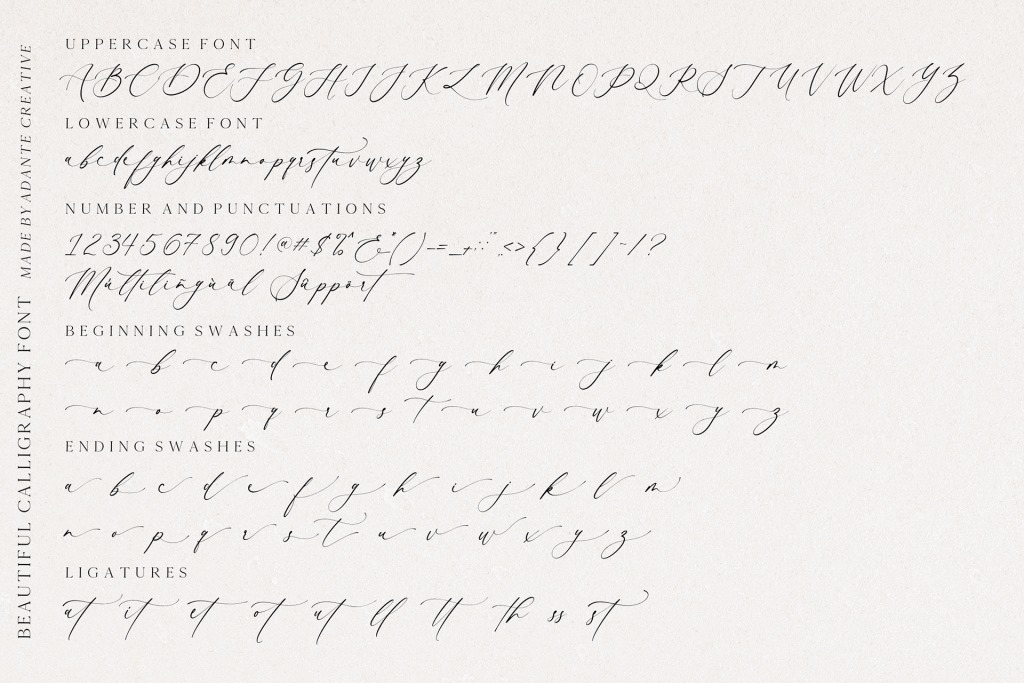 UPPERCASE FONT
ABCDEFGHIJKLMNOPQRSTUVWXYZ
LOWERCASE FONT
abcdefghijklmnopqrstuvwxyz
NUMBER AND PUNCTUATIONS
1234567890!@#$%^&*()-=_+
<>{}[]~/?
Multilingual Support
BEGINNING SWASHES
a b c d e f g h i j k l m
n o p q r s t u v w x y z
ENDING SWASHES
a b c d e f g h i j k l m
n o p q r s t u v w x y z
LIGATURES
at it et ot ut ll tt th ss st
BEAUTIFUL CALLIGRAPHY FONT MADE BY ADANTE CREATIVE